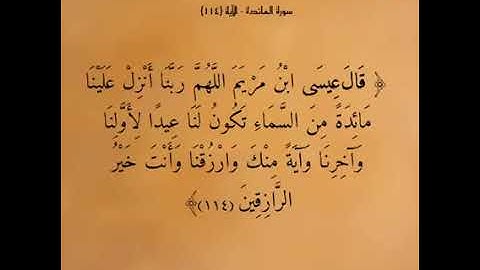 سورة المائدة - الآية (١١٤)
﴿ قَالَ عِيسَى ابْنُ مَرْيَمَ اللَّهُمَّ رَبَّنَا أَنْزِلْ عَلَيْنَا
مَائِدَةً مِنَ السَّمَاءِ تَكُونُ لَنَا عِيدًا لِأَوَّلِنَا
وَآخِرِنَا وَآيَةً مِنْكَ وَارْزُقْنَا وَأَنْتَ خَيْرُ
الرَّازِقِينَ (١١٤)﴾